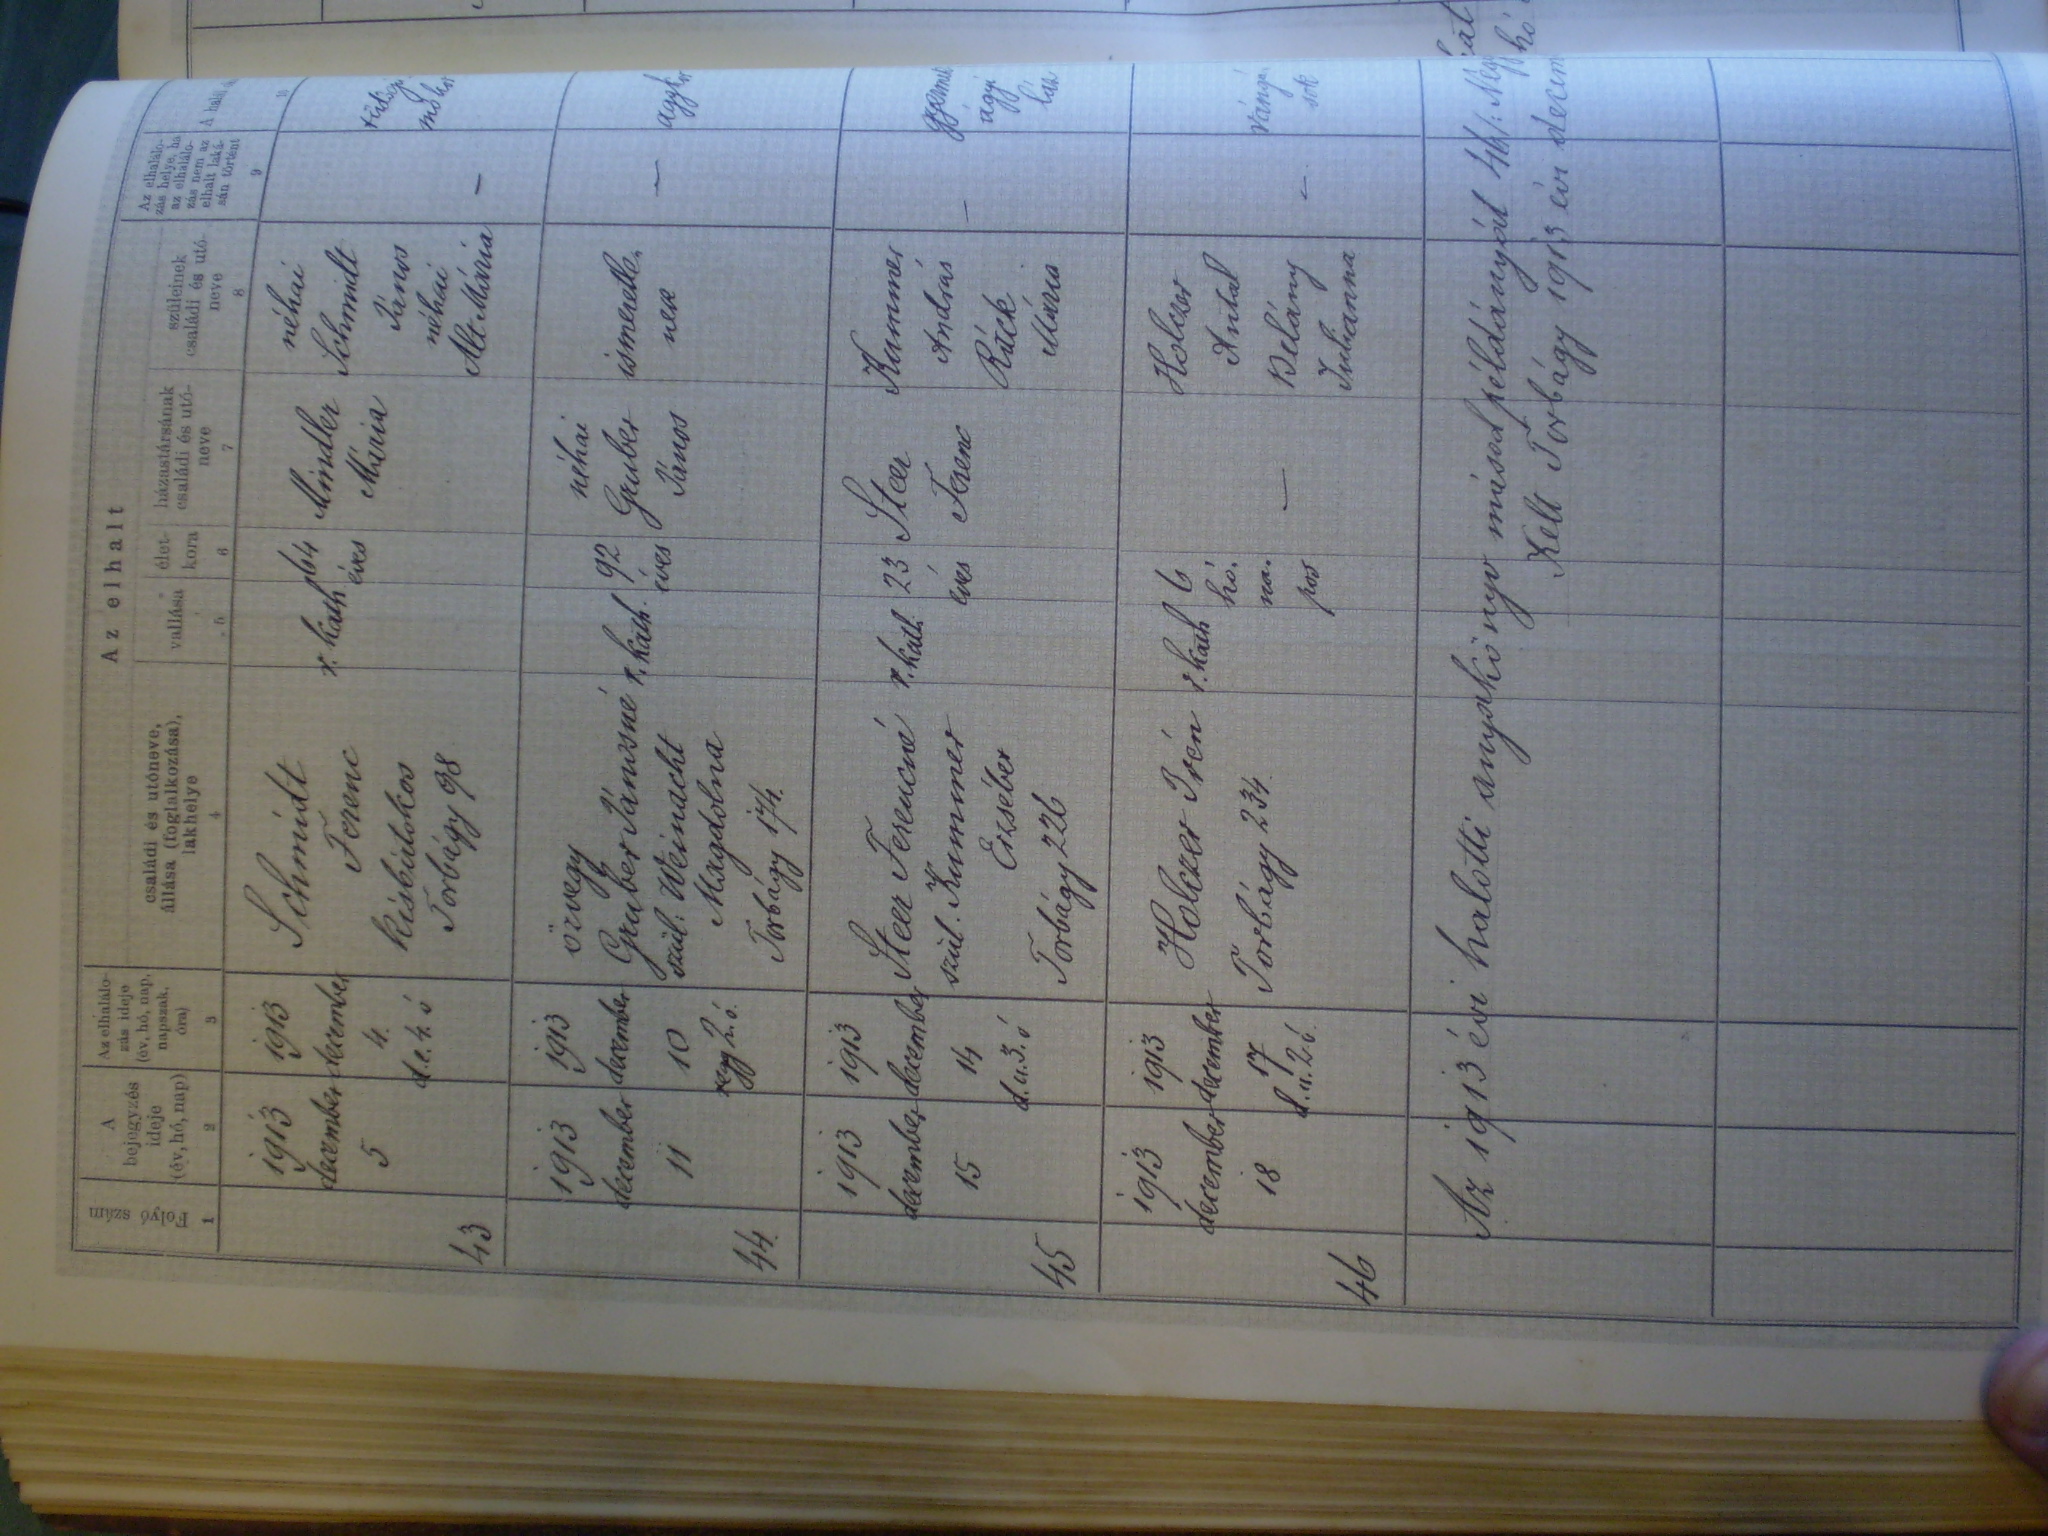 Az elhalt
Folyó
szám
A
bejegyzés
ideje
(év, hó, nap)
Az elhalálo-
zás ideje
(év, hó, nap,
napszak,
óra)
családi és utóneve,
állása (foglalkozása),
lakhelye
vallása
élet-
kora
házastársának
családi és utó-
neve
szüleinek
családi és utó-
neve
Az elhalálo-
zás helye, ha
az elhalálo-
zás nem az
elhalt laká-
sán történt
A halál
1
2
3
4
5
6
7
8
9
10
43
1913
december
5
1913
december
4.
d.e. 4. ó
Schmidt
Ferenc
kisbirtokos
Torbágy 98
r. kath
64
éves
Mindler
Mária
néhai
Schmidt
János
néhai
Alt Mária
—
44.
1913
december
11
1913
december
10
reggel 2. ó.
özvegy
Gruber Jánosné
szül. Weinacht
Magdolna
Torbágy 174.
r. kath.
92
éves
néhai
Gruber
János
ismeretle-
nek
—
45
1913
december
15
1913
december
14
d.u. 3. ó
Steer Ferencné
szül. Kummer
Erzsébet
Torbágy 226
r. kath.
23
éves
Steer
Ferenc
Kummer
András
Rück
Mária
—
gyermek
ágyi
láz
46
1913
december
18
1913
december
17
d.u. 2 ó.
Holczer Irén
Torbágy 234.
r. kath
6
hó-
na-
pos
—
Holczer
Antal
Belány
Julianna
—
rángá-
sok
Az 1913 évi halotti anyakönyv másodpéldányát 46
Kelt Torbágy 1913 évi decem